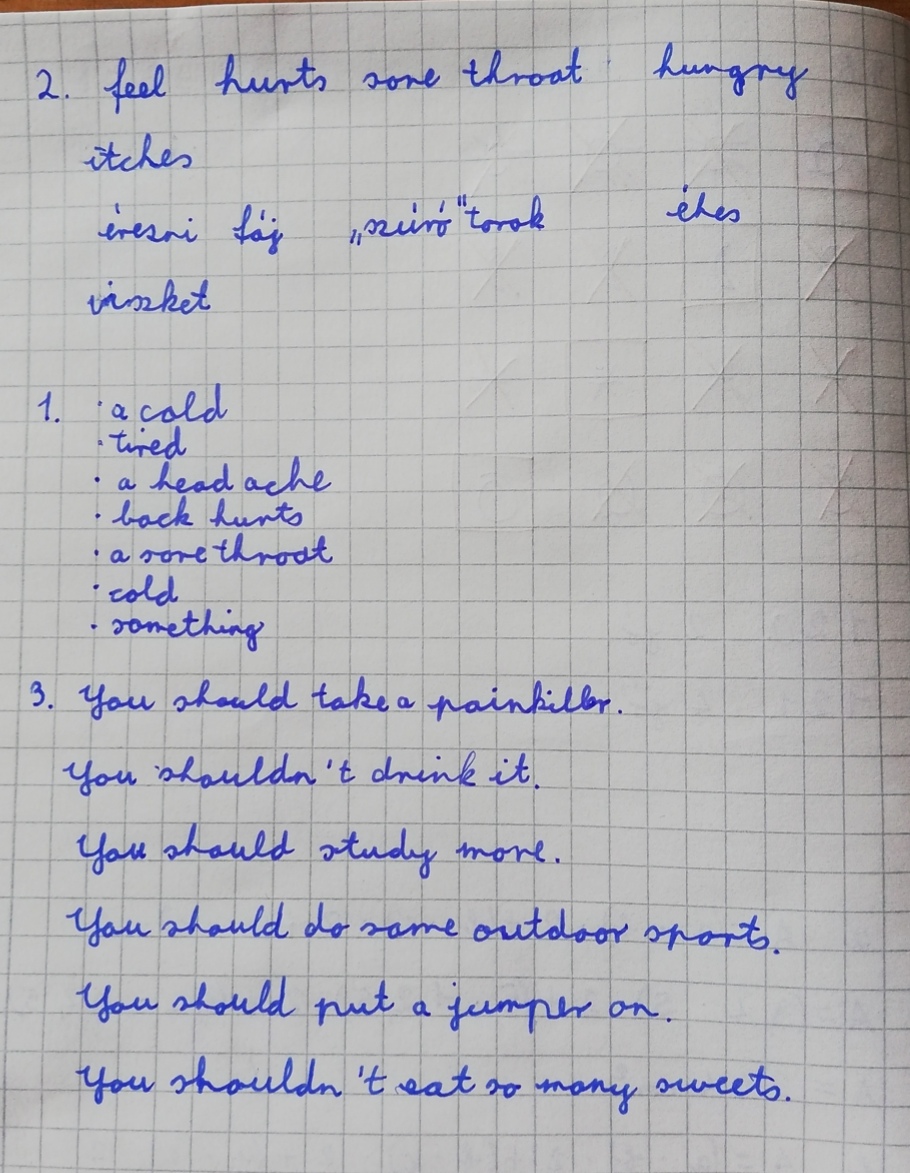 2. feel hurts sore throat hungry
itches
érezni fáj „szúró" torok éhes
viszket
1. · a cold
· tired
· a head ache
· back hurts
· a sore throat
· cold
· something
3. You should take a painkiller.
You shouldn't drink it.
You should study more.
You should do some outdoor sports.
You should put a jumper on.
You shouldn't eat so many sweets.